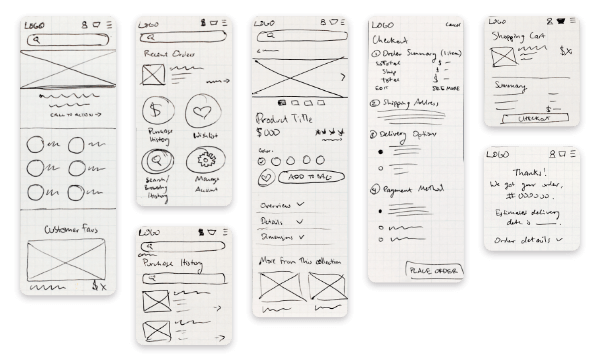 LOGO
CALL TO ACTION →
Customer Favs
$x
LOGO
Recent Orders
$
Purchase History
Wishlist
Search/
Browsing
History
Manage
Account
LOGO
Purchase History
LOGO
Product Title
$000
Color:
ADD TO BAG
Overview
Details
Dimensions
More from this collection
LOGO
Cancel
Checkout
① Order Summary (1 item)
Subtotal $ —
Ship $ —
Total $ —
EDIT SEE MORE
② Shipping Address
③ Delivery Options
④ Payment Method
PLACE ORDER
LOGO
Shopping Cart
$x
Summary
$ —
CHECKOUT
LOGO
Thanks!
We got your order,
#000000.
Estimated delivery
date is ____.
Order details